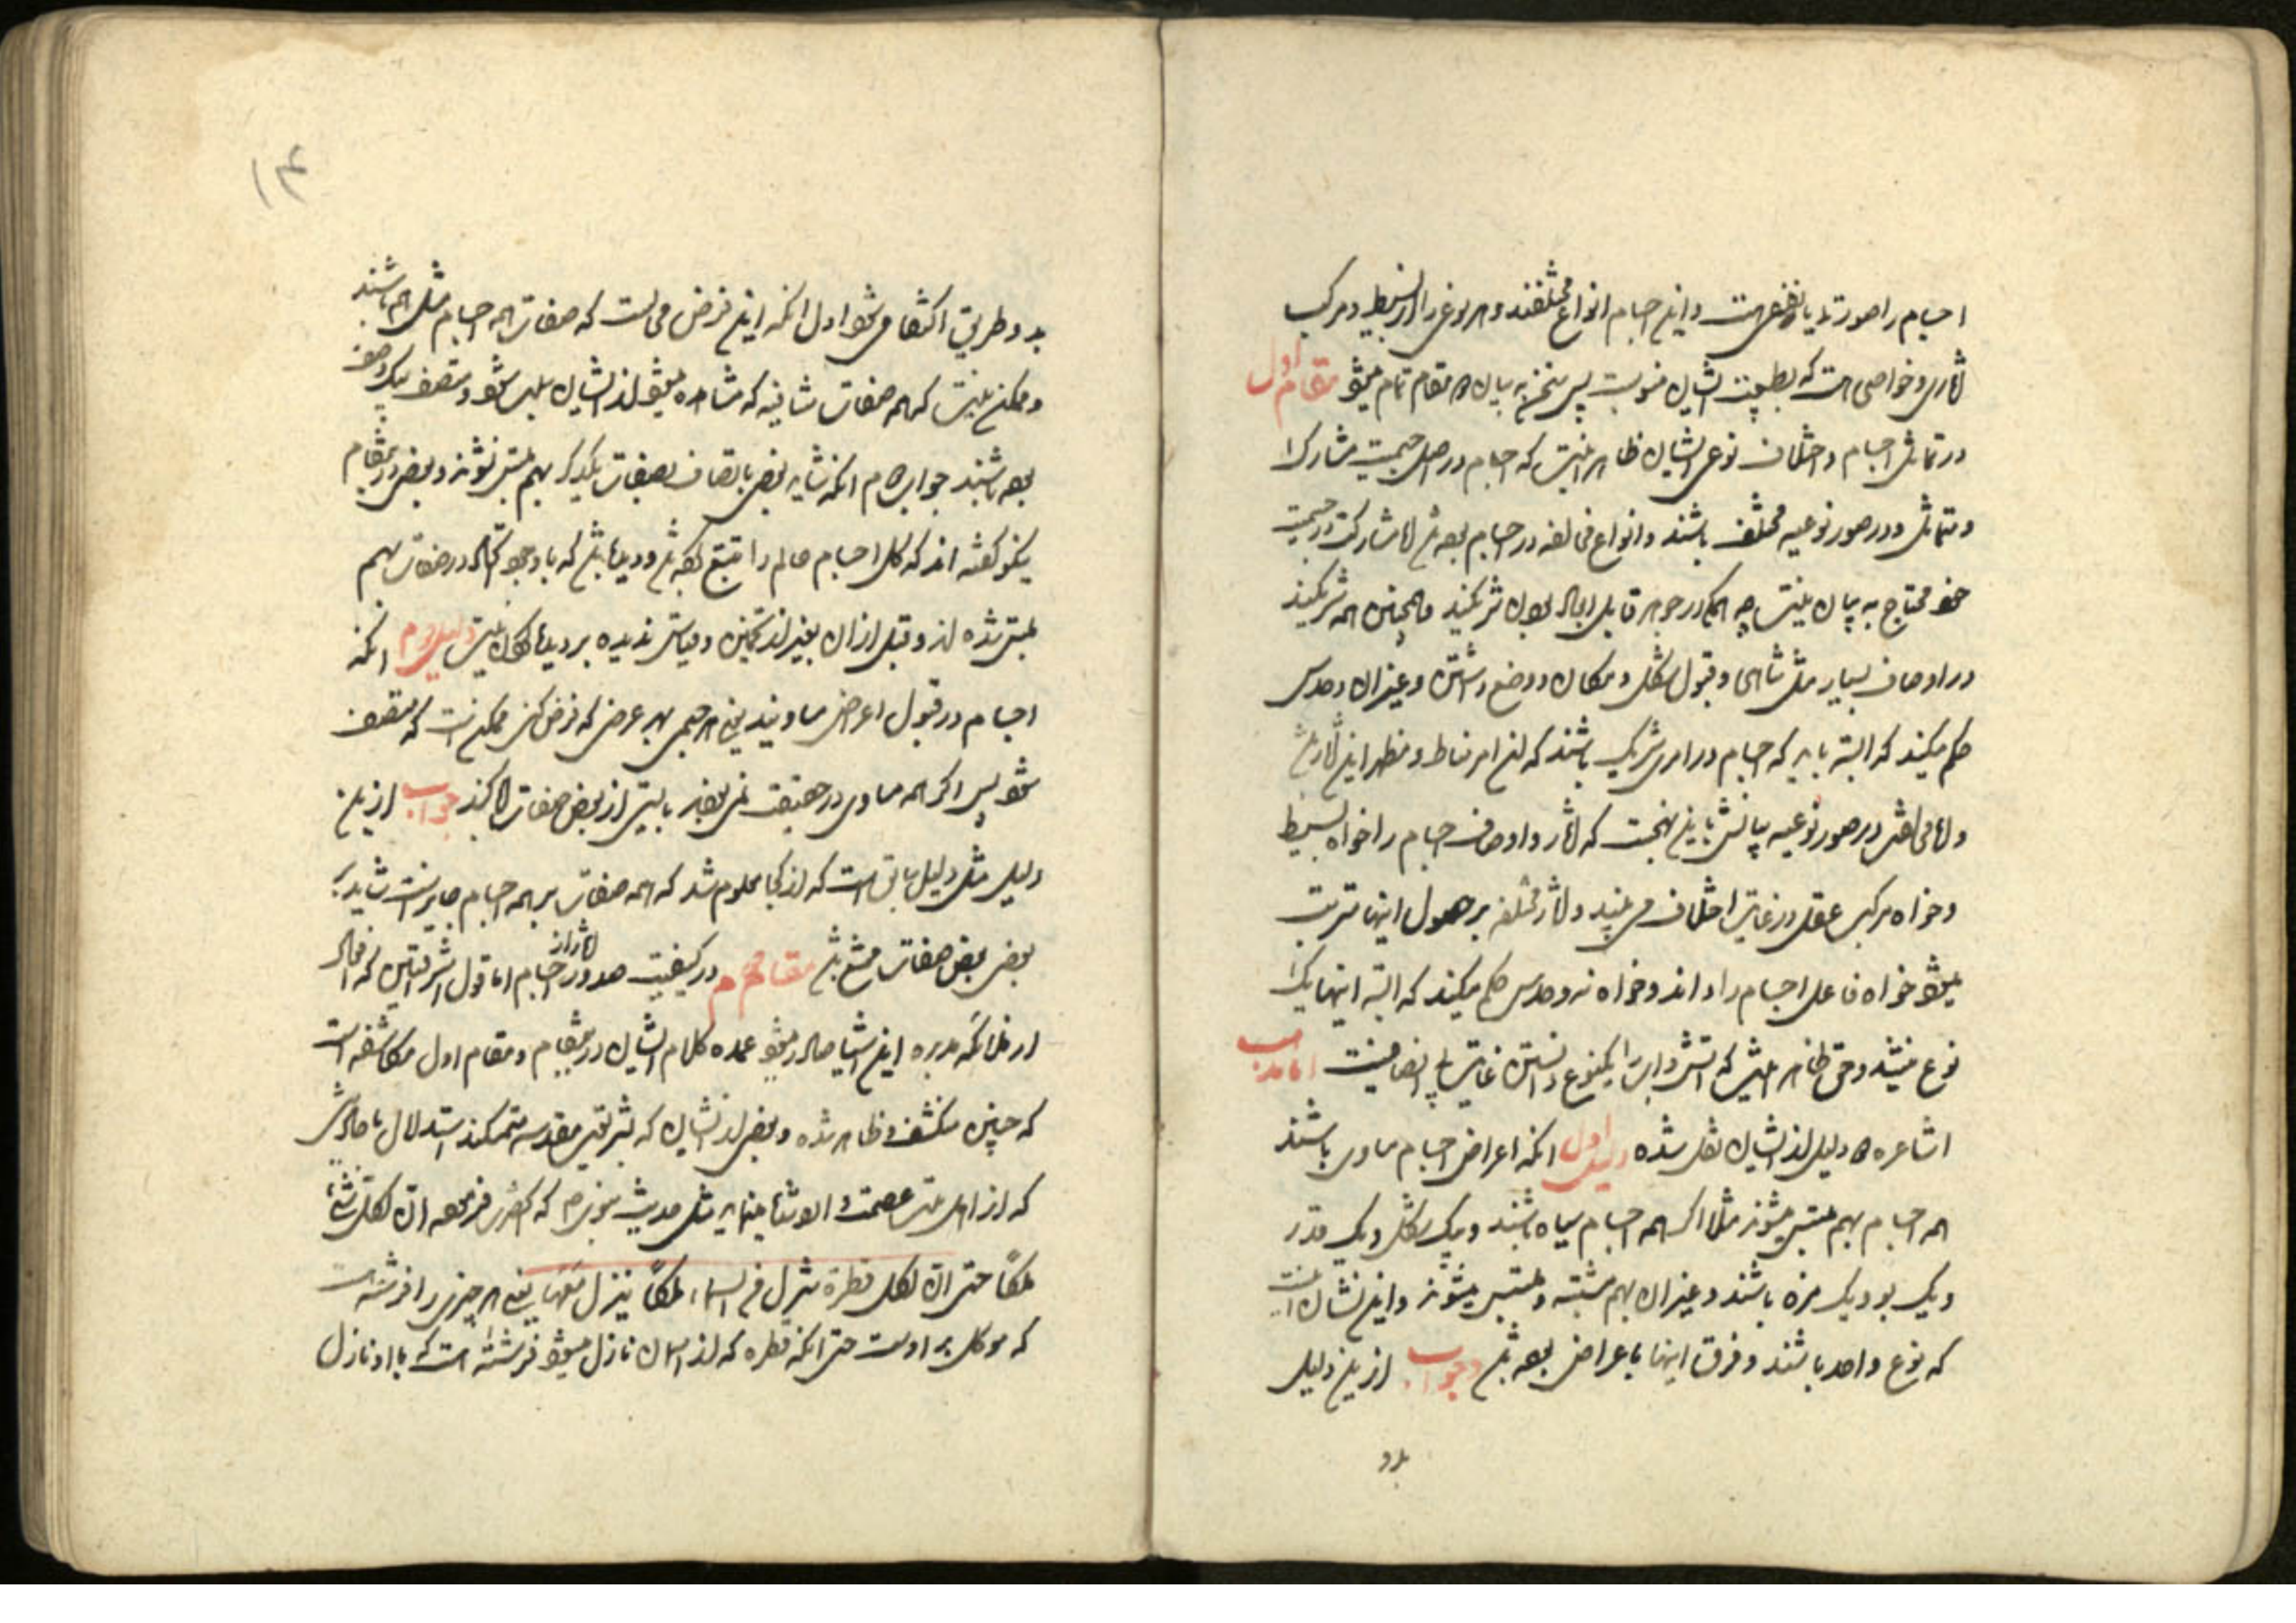 اجسام را صورتها یا نقض است و این اجسام انواع مختلفند و هر نوعی را از بسیط و مرکب
آثاری و خواصی است که بطبیعت ایشان منسوبست پس سخن به بیان دو مقام تمام میشود مقام اول
در تماثل اجسام و اختلاف نوعی ایشان ظاهر اینست که اجسام در اصل جسمیت مشارک
و متماثل و در صور نوعیه مختلف باشند و انواع مخالفه در اجسام بوده باشد اما مشارکت در جسمیت
خود محتاج به بیان نیست چه همه در جوهر قابل ابعاد بودن شریکند و همچنین همه شریکند
در اوصاف بسیار مثل تناهی و قبول شکل و مکان و وضع داشتن و غیر آن و حدس
حکم میکند که البته باید که اجسام در امری شریک باشند که این امر مناط و منظر این آثار باشد
و اما مخالفتش در صور نوعیه بیانش باین نهجست که آثار و اوصاف اجسام را خواه بسیط
و خواه مرکب عقل در غایت اختلاف می بیند و آثار مختلفه بر حصول اینها مترتب
میشود خواه فاعل اجسام را داند و خواه نه و حدس حکم میکند که البته اینها یک
نوع نیستند و حق ظاهر اینست که آتش و آب را یکنوع دانستن غایت بی انصافیست اما مذهب
اشاعره دو دلیل از ایشان نقل شده دلیل اول آنکه اعراض اجسام مساوی باشند
همه اجسام بهم ملتبس میشوند مثلا اگر همه اجسام سیاه باشند و بیک شکل و یک قدر
و یک بو و یک مزه باشند و غیر آن بهم مشتبه و ملتبس میشوند و این نشان آنست
که نوع واحد باشند و فرق اینها باعراض بوده باشد جواب ازین دلیل
بدو
بدو طریق اکتفا می شود اول آنکه این فرض محالست که صفات همه اجسام مثل هم باشند
و ممکن نیست که همه صفات متنافیه که مشاهده میشود از ایشان سلب شود و متصف بیک وصف
بوده باشند جواب دوم آنکه شاید بعضی باتصاف بصفات یکدیگر بهم ملتبس نشوند و بعضی درین مقام
نیکو گفته اند که کل اجسام عالم را تتبع کرده باشد و دیده باشد که با وجود اتحاد در صفات بهم
ملتبس شده اند و قبل از آن بغیر از تخمین و قیاس ندیده بر دیده ممکن نیست دلیل دوم آنکه
اجسام در قبول اعراض مساویند یعنی هر جسمی بهر عرضی که فرض کنی ممکن است که متصف
شود پس اگر همه مساوی در حقیقت نمی بودند بایستی از بعض صفات ابا کنند جواب ازین
دلیل مثل دلیل سابق است که از کجا معلوم شد که همه صفات بر همه اجسام جایز است شاید بر
بعضی بعض صفات ممتنع باشد مقام دوم در کیفیت صدور آثار از اجسام اما قول اشراقیین که افعال
از ملائکه مدبره این اشیا صادر میشود عمده کلام ایشان درین مقام و مقام اول مکاشفه است
که چنین منکشف و ظاهر شده و بعضی از ایشان که بشریعت مقدسه متمسکند استدلال باحادیثی
که از اهل بیت عصمت وارد شده مینمایند مثل حدیث نبوی ص که آنحضرت فرموده ان لکل شیء
ملکاً حتی ان لکل قطرة تنزل من السماء ملکاً ینزل معها یعنی هر چیزی را فرشته ایست
که موکل بر اوست حتی آنکه قطره که از آسمان نازل میشود فرشته است که با او نازل
۱۴